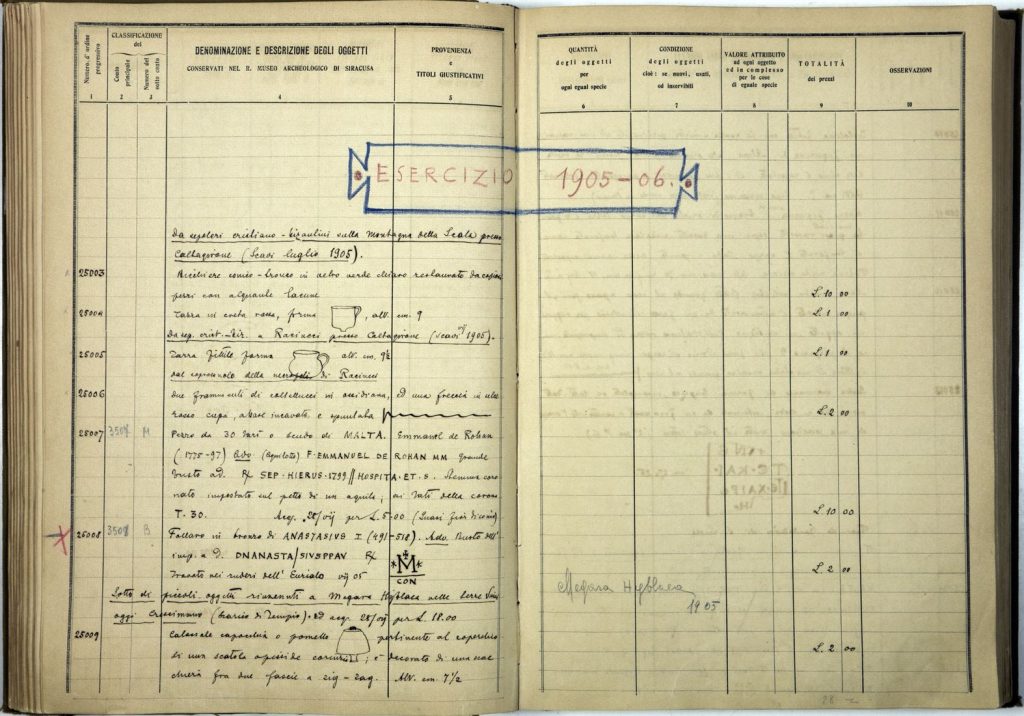 Numero d'ordine progressivo
CLASSIFICAZIONE del
Conto principale
Numero del sotto conto
DENOMINAZIONE E DESCRIZIONE DEGLI OGGETTI
CONSERVATI NEL R. MUSEO ARCHEOLOGICO DI SIRACUSA
PROVENIENZA
e
TITOLI GIUSTIFICATIVI
QUANTITÀ
degli oggetti
per
ogni egual specie
CONDIZIONE
degli oggetti
cioè: se nuovi, usati,
od inservibili
VALORE ATTRIBUITO
ad ogni oggetto
ed in complesso
per le cose
di eguale specie
TOTALITÀ
dei prezzi
OSSERVAZIONI
1 2 3 4 5 6 7 8 9 10
ESERCIZIO 1905-06.
Da sepolcri cristiano-bizantini sulla Montagna della Scala presso
Caltagirone (Scavi luglio 1905).
25003 Bicchiere conico-tronco in vetro verde chiaro restaurato da
pezzi con alquante lacune L. 10 00
25004 Tazza in creta rossa, forma , alt. cm. 9 L. 1 00
Da sep. crist.-biz. a Racineci presso Caltagirone (scavi 1905).
25005 Tazza fittile forma alt. cm. 9½ L. 1 00
dal della necropoli di Racineci
25006 due frammenti di coltellucci in ossidiana, ed una freccia in selce
rosso cupa, a base incavata, e spuntata L. 2 00
25007 3507 M Pezzo da 30 tarì o scudo di MALTA. Emmanuel de Rohan
(1775-97) Adv. F. EMMANUEL DE ROHAN MM grande
busto a d. ℞ SEP. HIERUS. 1799 // HOSPITA. ET. S. Stemma coro
nato impostato sul petto di un aquila; ai lati della corona
T. 30. Acq. 28/VII per L. 5.00 L. 10 00
25008 3508 B Follaro in bronzo di ANASTASIUS I (491-518). Adv. Busto dell'
imp. a d. DNANASTA/SIUSPPAV ℞ *M*
CON
Trovato nei ruderi dell'Eurialo VII 05 L. 2 00
Lotto di piccoli oggetti rinvenuti a Megara Hyblaea nelle terre
oggi (scarico di Tempio). Ed acq. 28/VII per L. 18.00
Megara Hyblaea
1905
25009 Colossale capocchia o pometto pertinente al coperchio
di una scatola ; è decorato di una scac
chiera fra due fascie a zig-zag. Alt. cm. 7½ L. 2 00